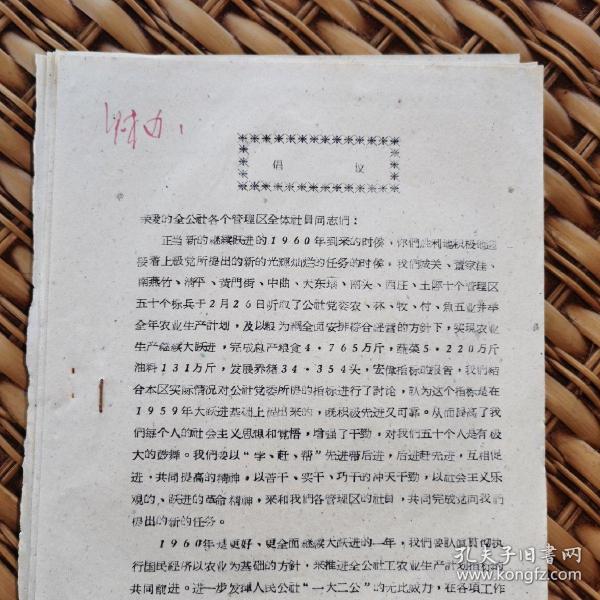 倡 议
亲爱的全公社各个管理区全体社員同志們：
正当新的継续跃进的1960年到来的时候，你們胜利地积极地迎
接着上級党所提出的新的光輝灿烂的任务的时候，我們城关、董家佳、
南燕竹、清平、黄門街、中曲、大东場、南头、西庄、土 十个管理区
五十个标兵于2月26日听取了公社党委农、林、牧、付、魚五业并举
全年农业生产計划，及以粮为綱全面安排綜合経营的方針下，实現农业
生产継续大跃进，完成总产粮食4·765万斤，蔬菜5·220万斤
油料131万斤，发展养猪34·354头，宏偉指标的报告，我們結
合本区实际情况对公社党委所提的指标进行了討論，认为这个指标是在
1959年大跃进基础上提出来的，既积极先进又可靠。从而提高了我
們每个人的社会主义思想和覚悟，增强了干勁，对我們五十个人是有极
大的鼓舞。我們要以“学、赶、帮”先进帶后进，后进赶先进，互相促
进，共同提高的精神，以苦干、实干、巧干的冲天干勁，以社会主义乐
观的、跃进的革命精神，来和我們各管理区的社員，共同完成党向我們
提出的新的任务。
1960年是更好、更全面継续大跃进的一年，我們要认眞貫彻执
行国民経济以农业为基础的方針，来推进全公社工农业生产計划指标的
共同前进。进一步发揮人民公社“一大二公”的无比威力，在各項工作
孔夫子旧书网
www.kongfz.com